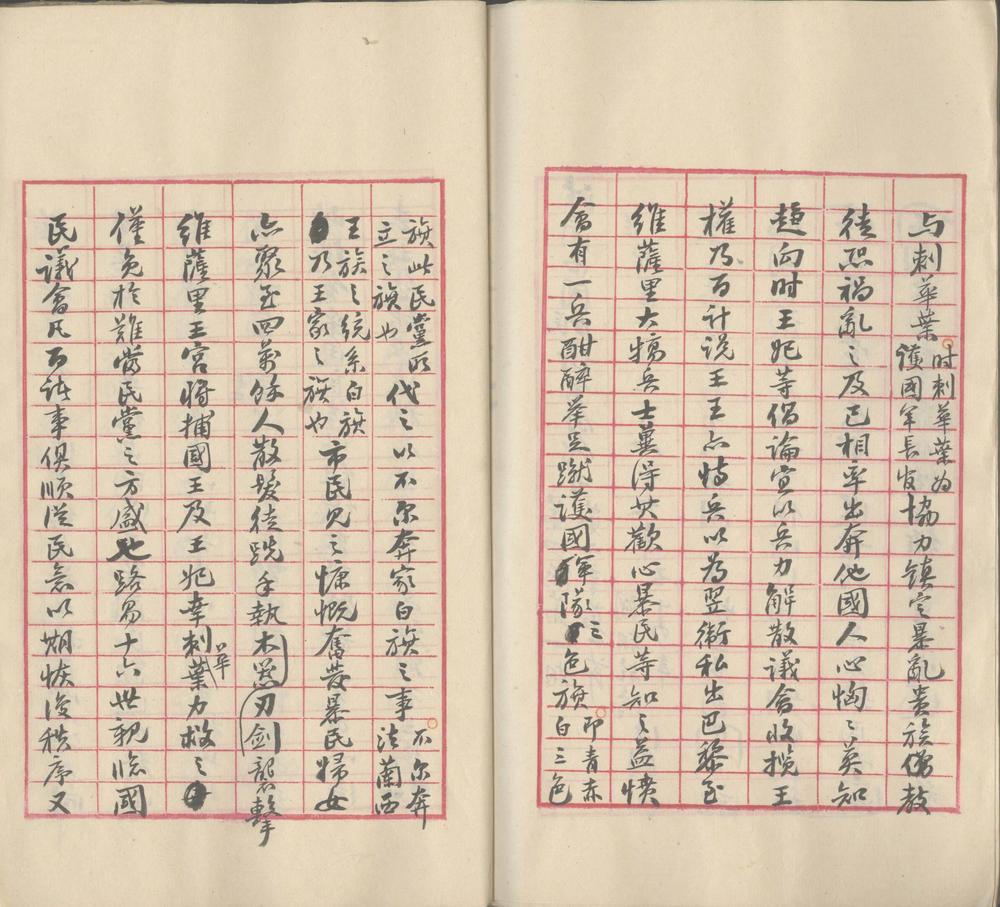 与刺華葉時刺華葉為護國軍長官協力鎮定暴亂貴族僧教
徒恐禍亂之及已相率出奔他國人心恟之莫知
趨向时王妃等倡論宣以兵力解散議會收攬王
權乃百计说王王亦恃兵以為翌衛私出巴黎至
維薩里大犒兵士冀得其歡心暴民等知之益憤
會有一兵酣醉举足蹴護國軍隊三色旗即青赤白三色
旗此民黨所立之旗也代之以不尔奔家白旗之事不尔奔法蘭西
王族之統系白旗乃王家之旗也市民見之慷慨奮發暴民婦女
亦聚至四萬餘人散髮徒跣手執木器刃劍襲擊
維薩里王宮將捕國王及王妃幸刺華葉力救之
僅免於難當民黨之方盛也路易十六世親臨國
民議會凡百諸事俱順從民意以期恢復秩序又